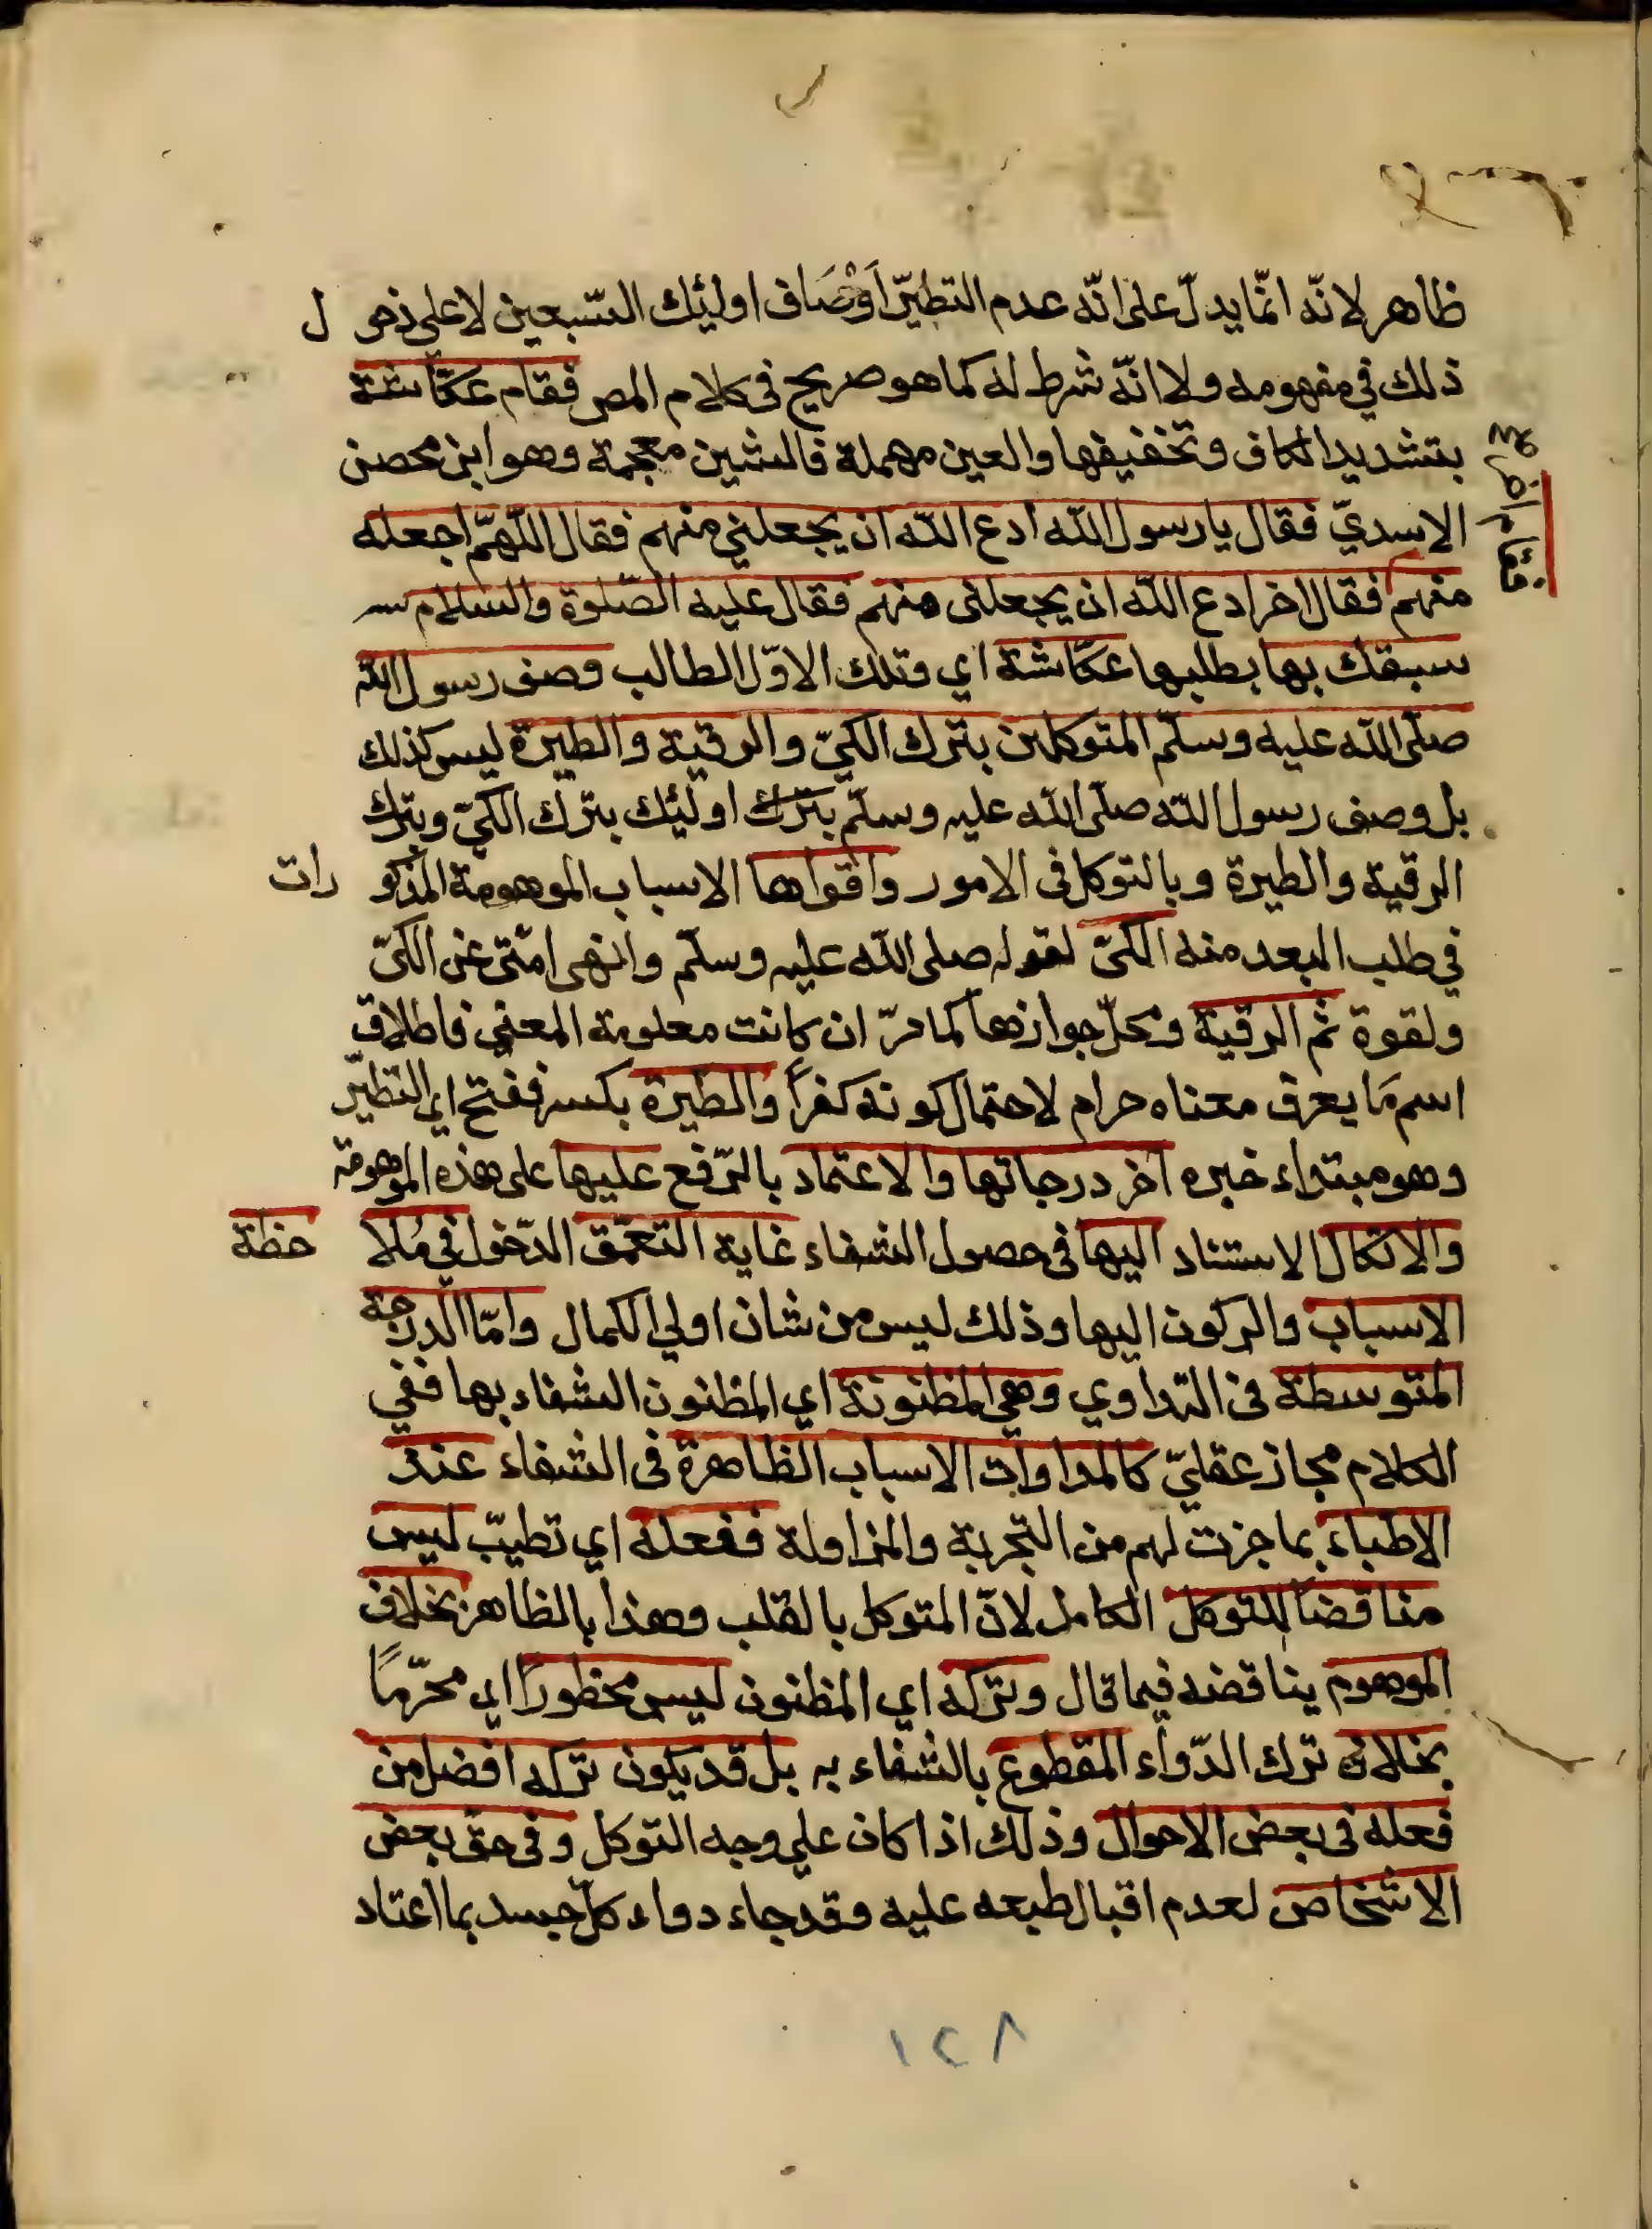 ظاهر لانّه انّما يدلّ على انّه عدم التطيّر اَوْصَاف اولئك السّبعين لا على ذهو ل
ذلك في مفهومه ولا انّه شرط له كما هو صريح في كلام المص فقام عكّاشة
بتشديد الكاف وتخفيفها والعين مهملة فالشين معجمة وهو ابن محصن
الاسديّ فقال يا رسول الله ادع الله ان يجعلني منهم فقال اللّهمّ اجعله
منهم فقال اخر ادع الله ان يجعلنى منهم فقال عليه الصّلوة والسلام سـ
سبقك بها بطلبها عكّاشة اي وتلك الاوّل الطالب وصف رسول الله
صلّى الله عليه وسلّم المتوكلين بترك الكيّ والرقية والطيرة ليس كذلك
بل وصف رسول الله صلّى الله عليه وسلّم بترك اولئك بترك الكيّ وبترك
الرقية والطيرة وبالتوكل فى الامور واقواها الاسباب الموهومة المذكو رات
في طلب البعد منه الكىّ لقوله صلى الله عليه وسلّم وانهى امّتى عن الكىّ
ولقوة ثم الرقية ومحلّ جوازها كما مرّ ان كانت معلومة المعنى فاطلاق
اسم مَا يعرف معناه حرام لاحتمال كونه كفراً والطيرة بكسر ففتح اى التطيّر
وهو مبتداء خبره اخر درجاتها والاعتماد بالرّفع عليها على هذه الموهومة
والاتكال الاستناد اليها فى حصول الشفاء غاية التعمّق الدّخول في مُلا حظة
الاسباب والركون اليها وذلك ليس من شان اولي الكمال وامّا الدرجة
المتوسطة فى التداوي وهي المظنونة اي المظنون الشفاء بها ففي
الكلام مجاز عقليّ كالمداوات الاسباب الظاهرة فى الشفاء عند
الاطباء بما جزت لهم من التجربة والمزاولة ففعله اي تطيبّ ليس
مناقضاً للتوكل الكامل لانّ المتوكل بالقلب وهذا بالظاهر بخلاف
الموهوم يناقضه فيما قال وتركه اي المظنون ليس محظوراً اى محرّمًا
بخلاف ترك الدّواء المقطوع بالشفاء به بل قد يكون تركه افضل من
فعله فى بعض الاحوال وذلك اذا كان على وجه التوكل وفى حق بعض
الاشخاص لعدم اقبال طبعه عليه وقد جاء دواء كلّ جسد بما اعتاد
١٢٨